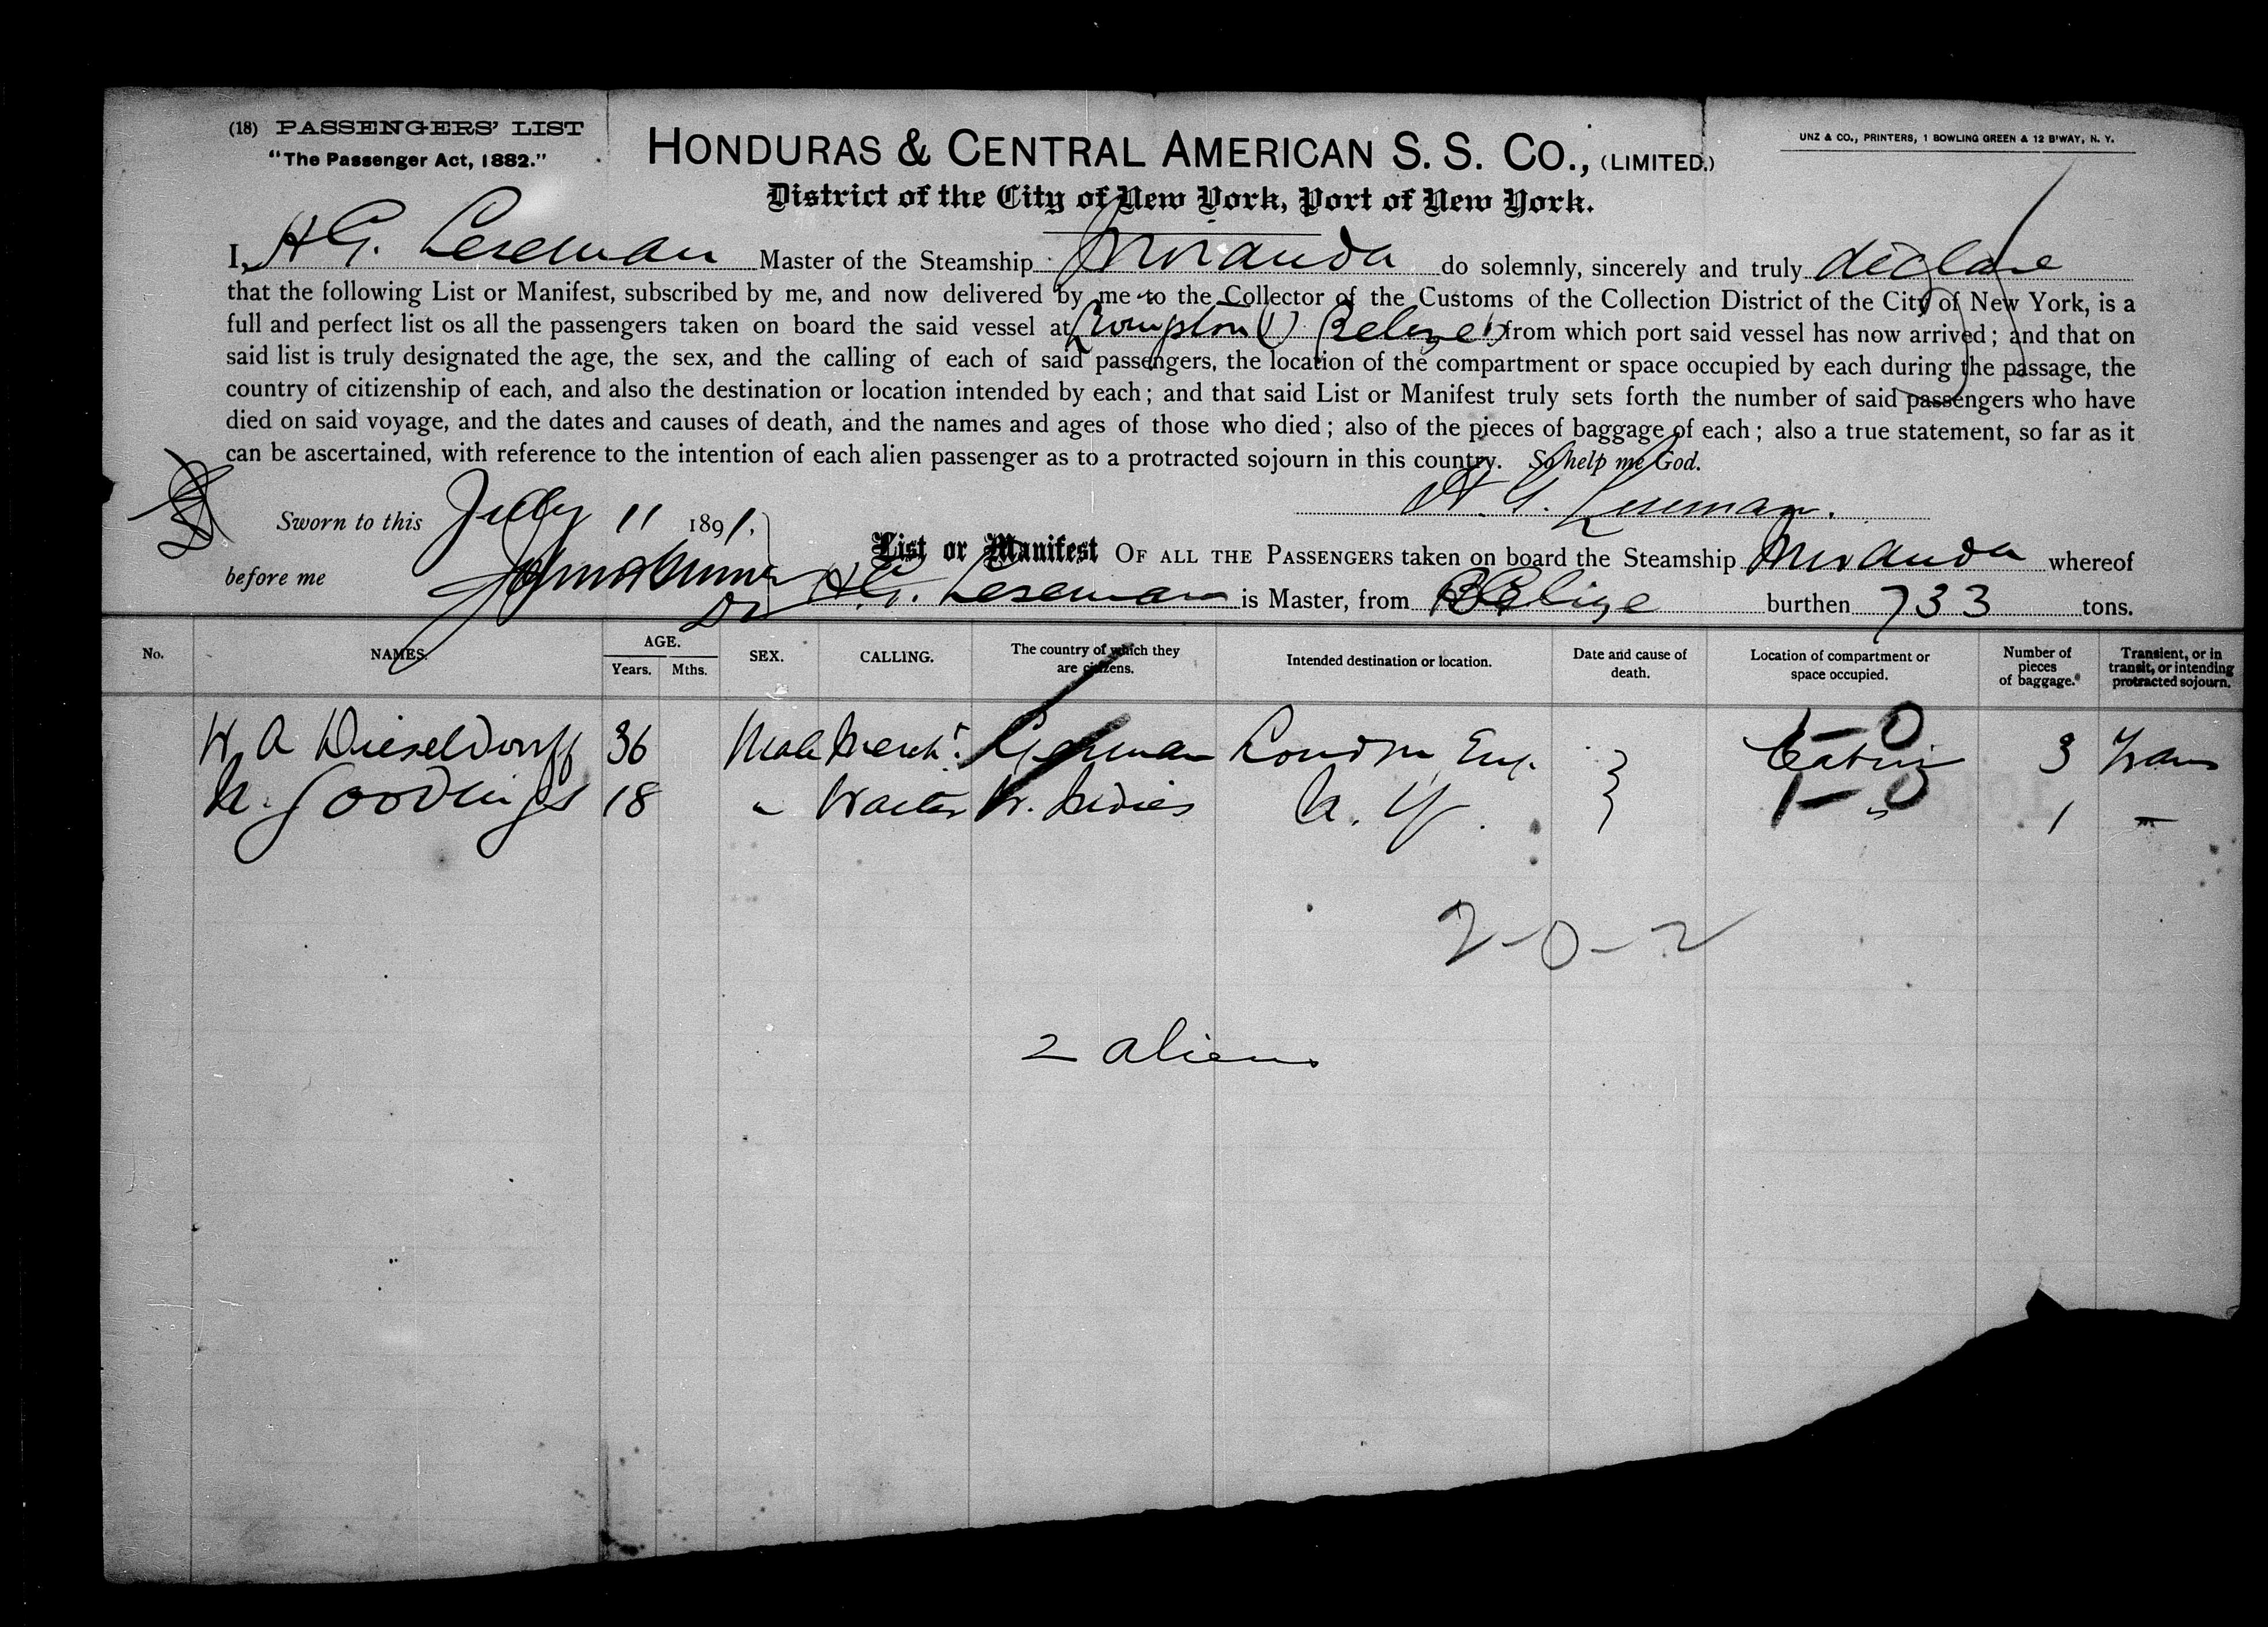 (18) PASSENGERS' LIST
"The Passenger Act, 1882."
HONDURAS & CENTRAL AMERICAN S. S. CO., (LIMITED.)
UNZ & CO., PRINTERS, 1 BOWLING GREEN & 12 B'WAY, N. Y.
District of the City of New York, Port of New York.
I, H G. Leseman Master of the Steamship Miranda do solemnly, sincerely and truly declare
that the following List or Manifest, subscribed by me, and now delivered by me to the Collector of the Customs of the Collection District of the City of New York, is a
full and perfect list os all the passengers taken on board the said vessel at Belize from which port said vessel has now arrived; and that on
said list is truly designated the age, the sex, and the calling of each of said passengers, the location of the compartment or space occupied by each during the passage, the
country of citizenship of each, and also the destination or location intended by each; and that said List or Manifest truly sets forth the number of said passengers who have
died on said voyage, and the dates and causes of death, and the names and ages of those who died; also of the pieces of baggage of each; also a true statement, so far as it
can be ascertained, with reference to the intention of each alien passenger as to a protracted sojourn in this country. So help me God.
H. G. Leseman.
Sworn to this July 11 1891.
before me
List or Manifest OF ALL THE PASSENGERS taken on board the Steamship Miranda whereof
H G. Leseman is Master, from Belize burthen 733 tons.
No. NAMES. AGE. Years. Mths. SEX. CALLING. The country of which they are citizens. Intended destination or location. Date and cause of death. Location of compartment or space occupied. Number of pieces of baggage. Transient, or in transit, or intending protracted sojourn.
W A Dieseldorff 36 Male Mercht. German London Eng. 1-0 Cabin 3 Trans
N. Goodings 18 " Waiter W. Indies N. Y. 1-0 " 1 "
2-0-2
2 aliens